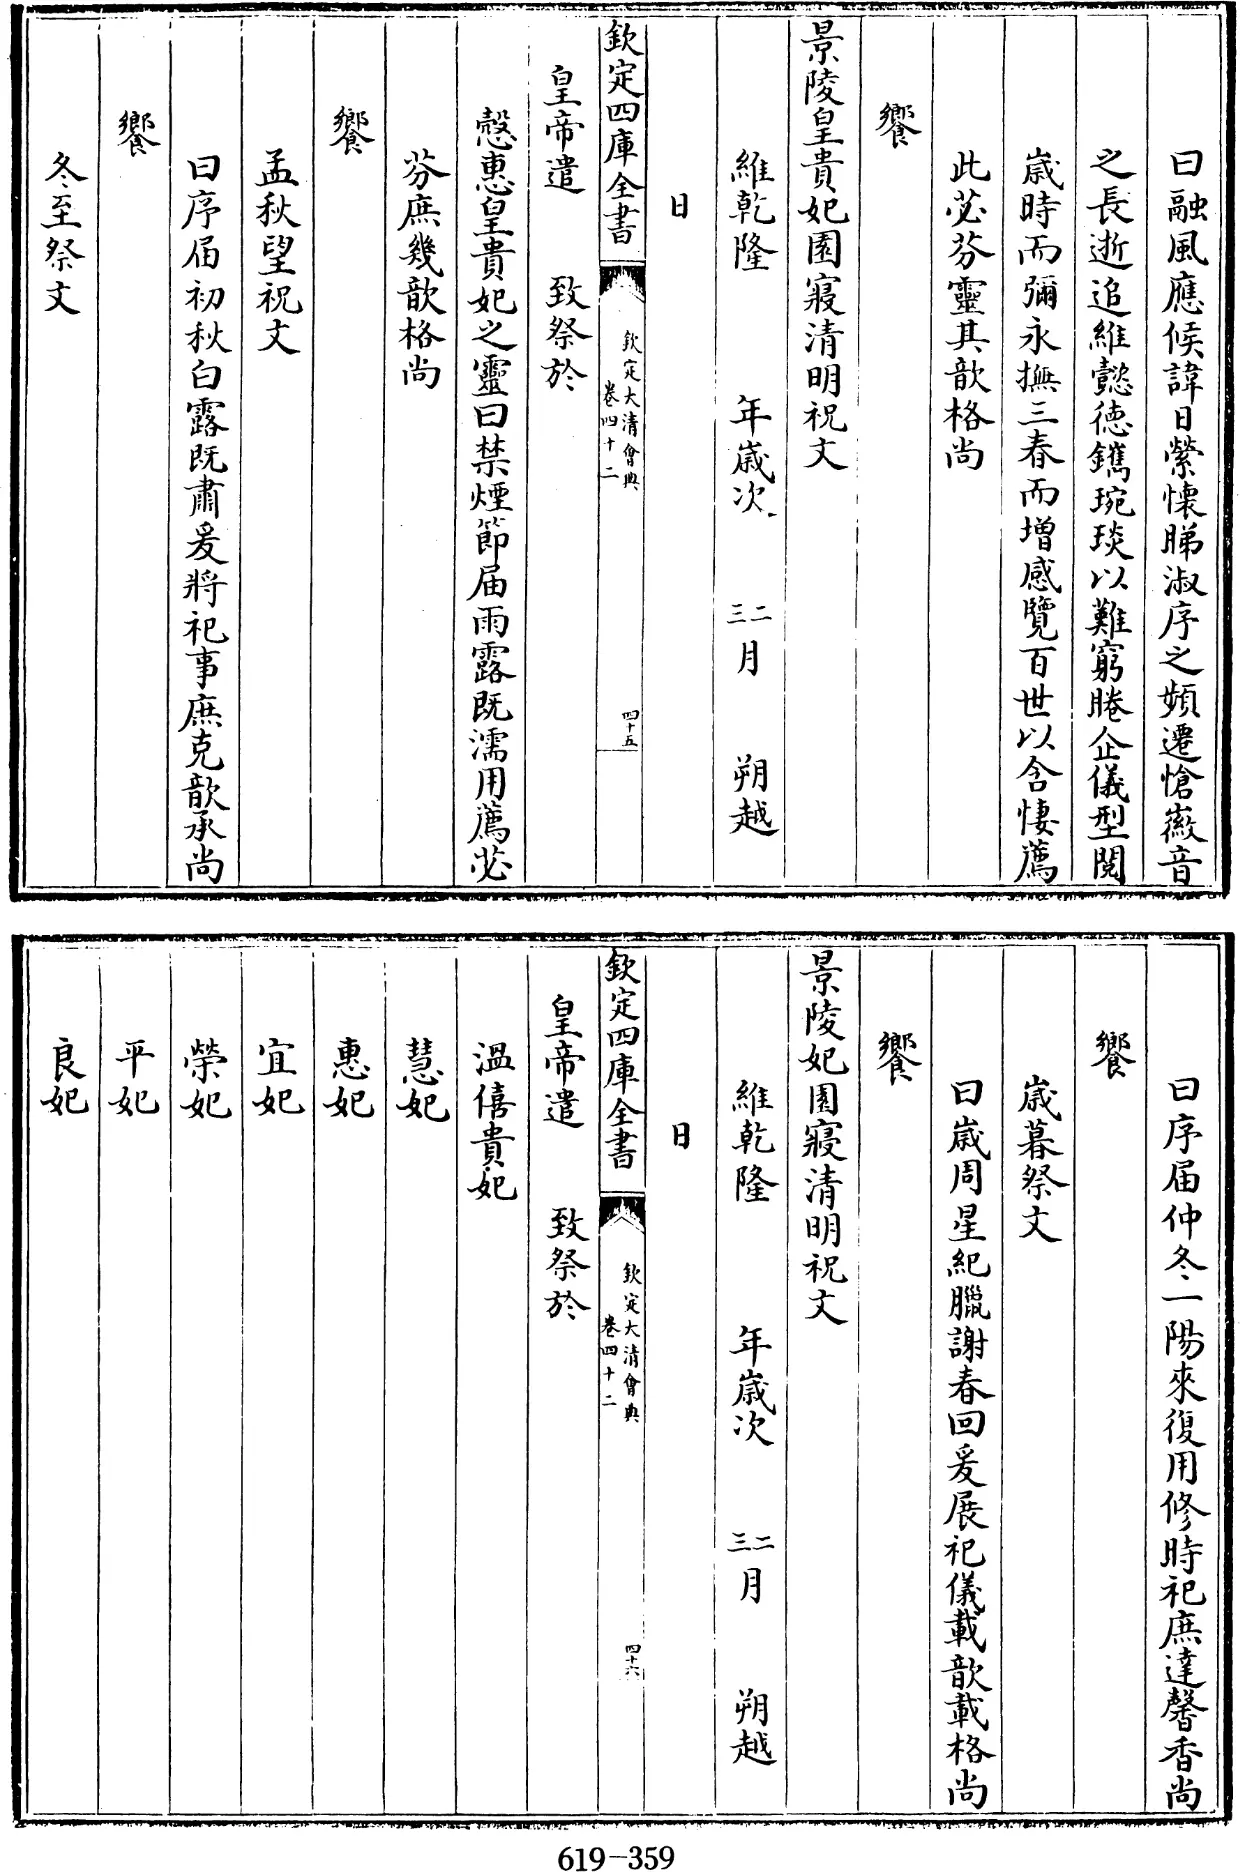 曰融風應候諱日縈懷睇淑序之頻遷愴徽音
之長逝追維懿徳鐫琬琰以難窮睠企儀型閱
歲時而彌永撫三春而增感覽百世以含悽薦
此苾芬靈其歆格尚
饗
景陵皇貴妃園寢清明祝文
維乾隆 年歲次 二三月 朔越
日
欽定四庫全書
欽定大清會典
卷四十二
四十五
皇帝遣 致祭於
慤惠皇貴妃之靈曰禁煙節屆雨露既濡用薦苾
芬庶幾歆格尚
饗
孟秋望祝文
曰序屆初秋白露既肅爰將祀事庶克歆承尚
饗
冬至祭文
曰序屆仲冬一陽來復用修時祀庶達馨香尚
饗
歲暮祭文
曰歲周星紀臘謝春回爰展祀儀載歆載格尚
饗
景陵妃園寢清明祝文
維乾隆 年歲次 二三月 朔越
日
欽定四庫全書
欽定大清會典
卷四十二
四十六
皇帝遣 致祭於
溫僖貴妃
慧妃
惠妃
宜妃
榮妃
平妃
良妃
619-359